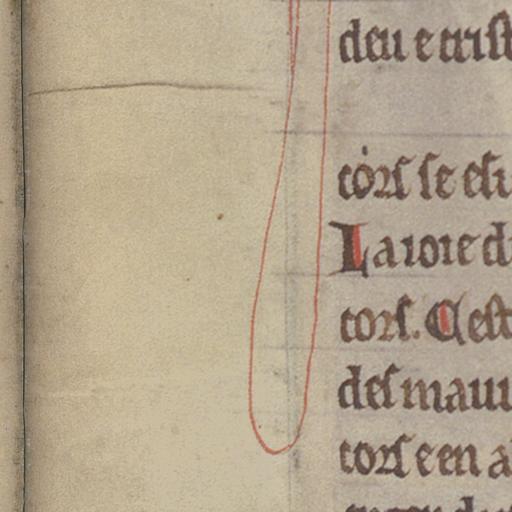 deu e trist
tors se esi
La ioie d
tors. Cest
des mauu
tors e en a